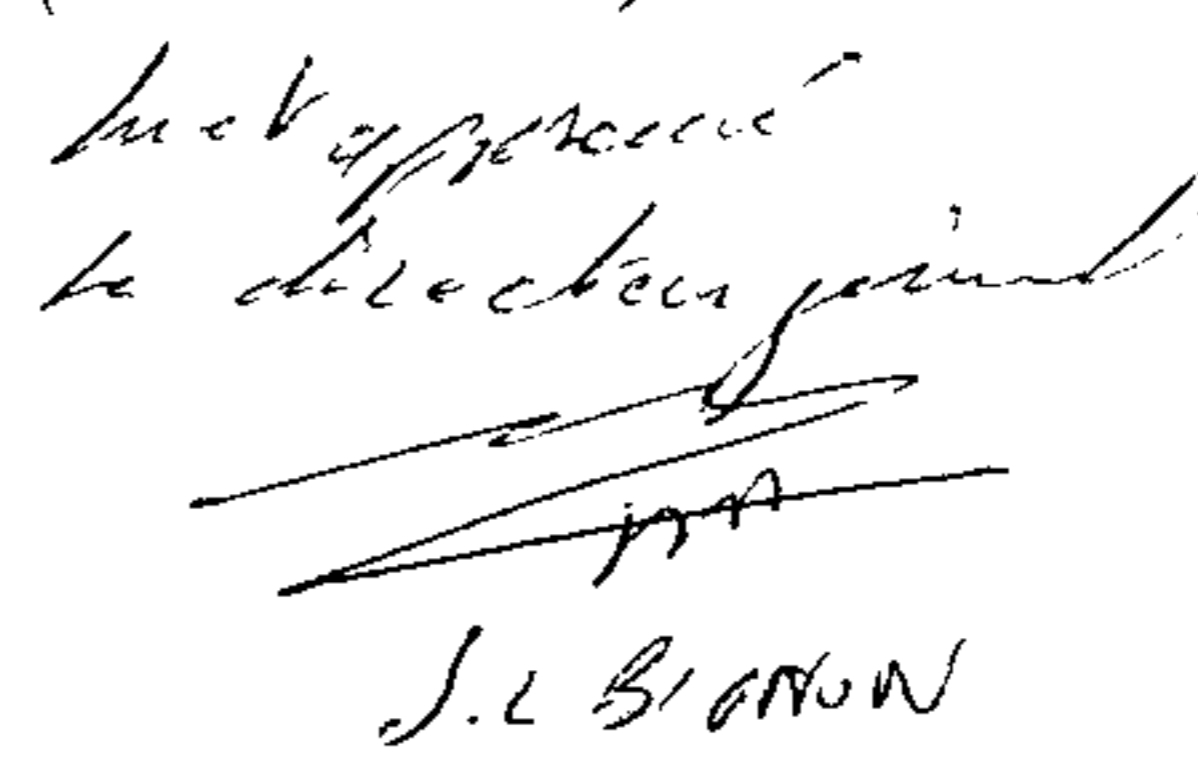 Lu et approuvé
Le directeur général
J.L BIGNON